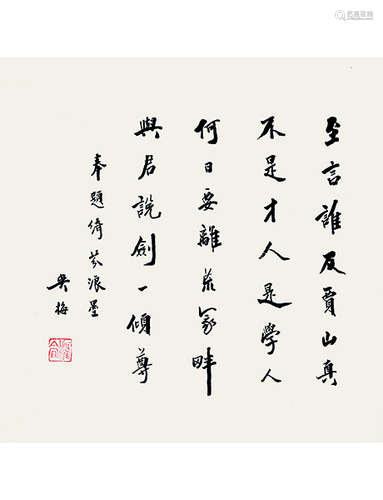 至言誰反賈山真
不是才人是學人
何日要離荒冢畔
與君說劍一傾尊
奉題倚芬浪墨
吳梅